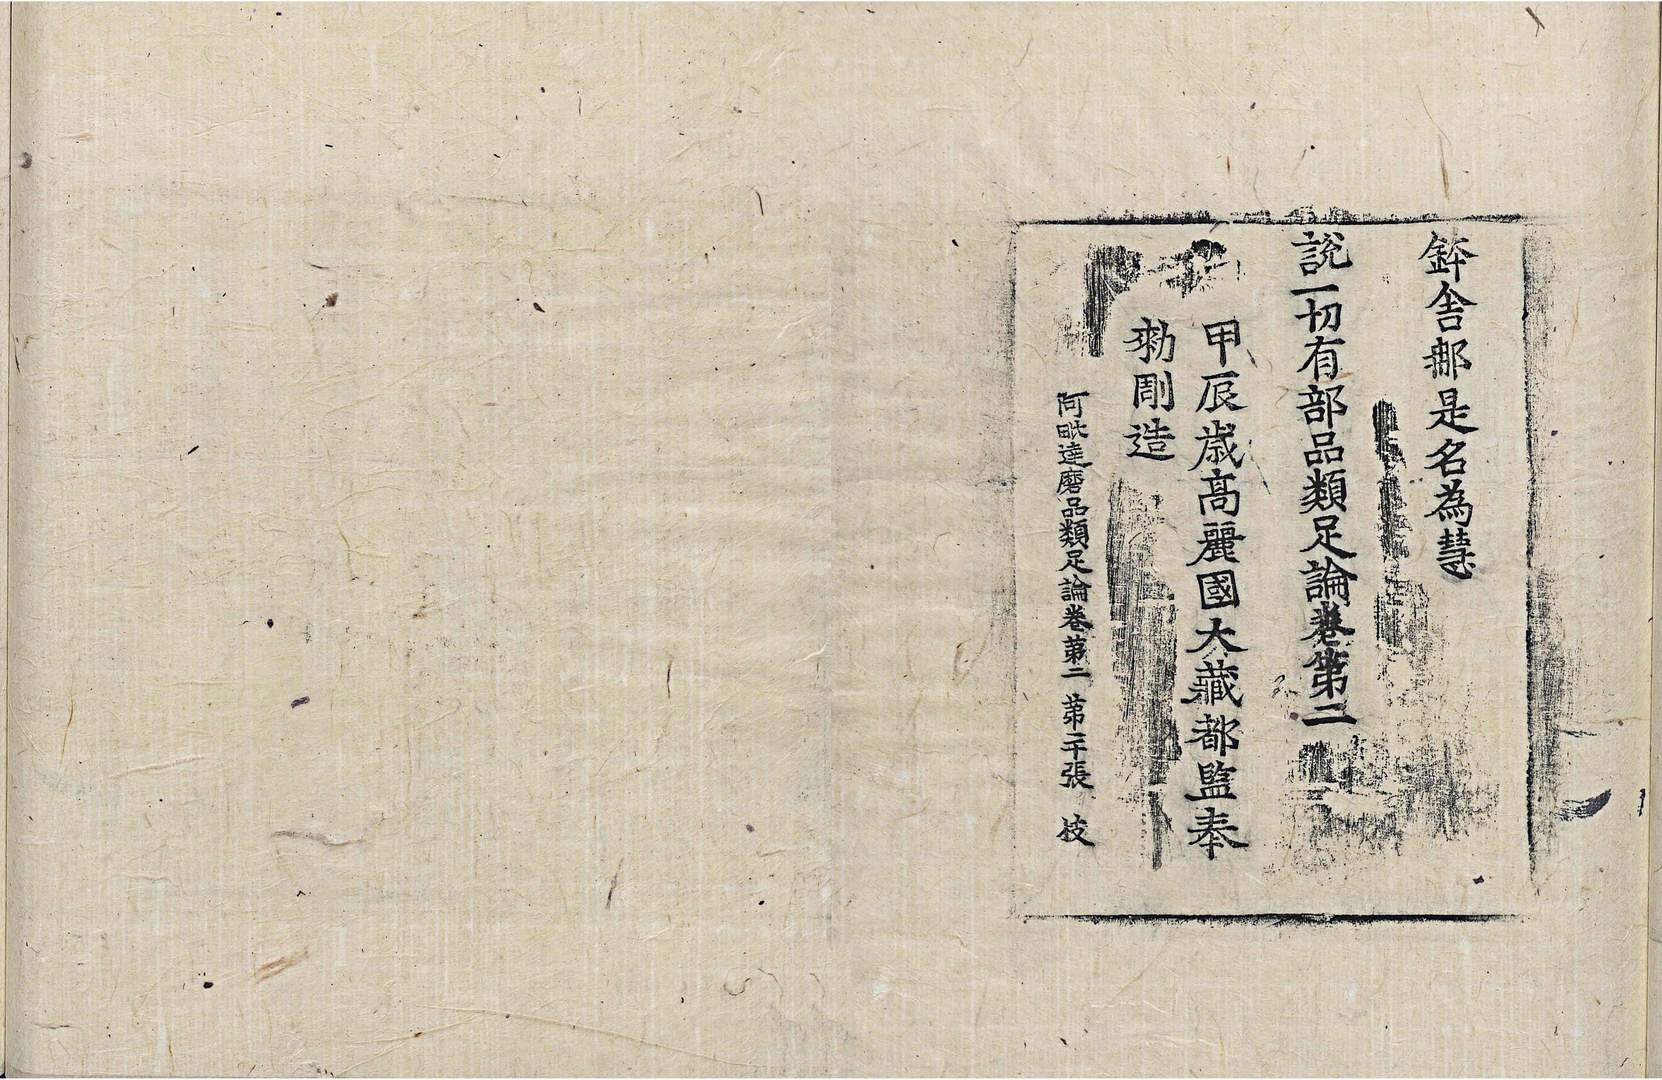 鉢舍那是名為慧
說一切有部品類足論卷第二
甲辰歲高麗國大藏都監奉
勅彫造
阿毗達磨品類足論卷第二 第二十張 枝